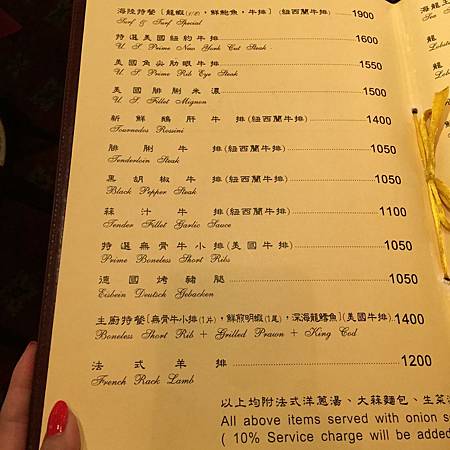 海陸特餐〔龍蝦(1/2)，鮮鮑魚，牛排〕(紐西蘭牛排) 1900
Surf & Turf Special
特選美國紐約牛排 1600
U. S. Prime New York Cut Steak
美國角尖肋眼牛排 1550
U. S. Prime Rib Eye Steak
美國腓脷米濃 1500
U. S. Fillet Mignon
新鮮鵝肝牛排(紐西蘭牛排) 1400
Tournedos Rossini
腓脷牛排(紐西蘭牛排) 1050
Tenderloin Steak
黑胡椒牛排(紐西蘭牛排) 1050
Black Pepper Steak
蒜汁牛排(紐西蘭牛排) 1100
Tender Fillet Garlic Sauce
特選無骨牛小排(美國牛排) 1050
Prime Boneless Short Ribs
德國烤豬腿 1050
Eisbein Deutsch Gebacken
主廚特餐〔無骨牛小排(1片)，鮮煎明蝦(1尾)，深海龍鱈魚〕(美國牛排) 1400
Boneless Short Rib + Grilled Prawn + King Cod
法式羊排 1200
French Rack Lamb
以上均附法式洋蔥湯、大蒜麵包、生菜
All above items served with onion
( 10% Service charge will be added
海龍王
Sea
龍
Lobst
龍
Lobste